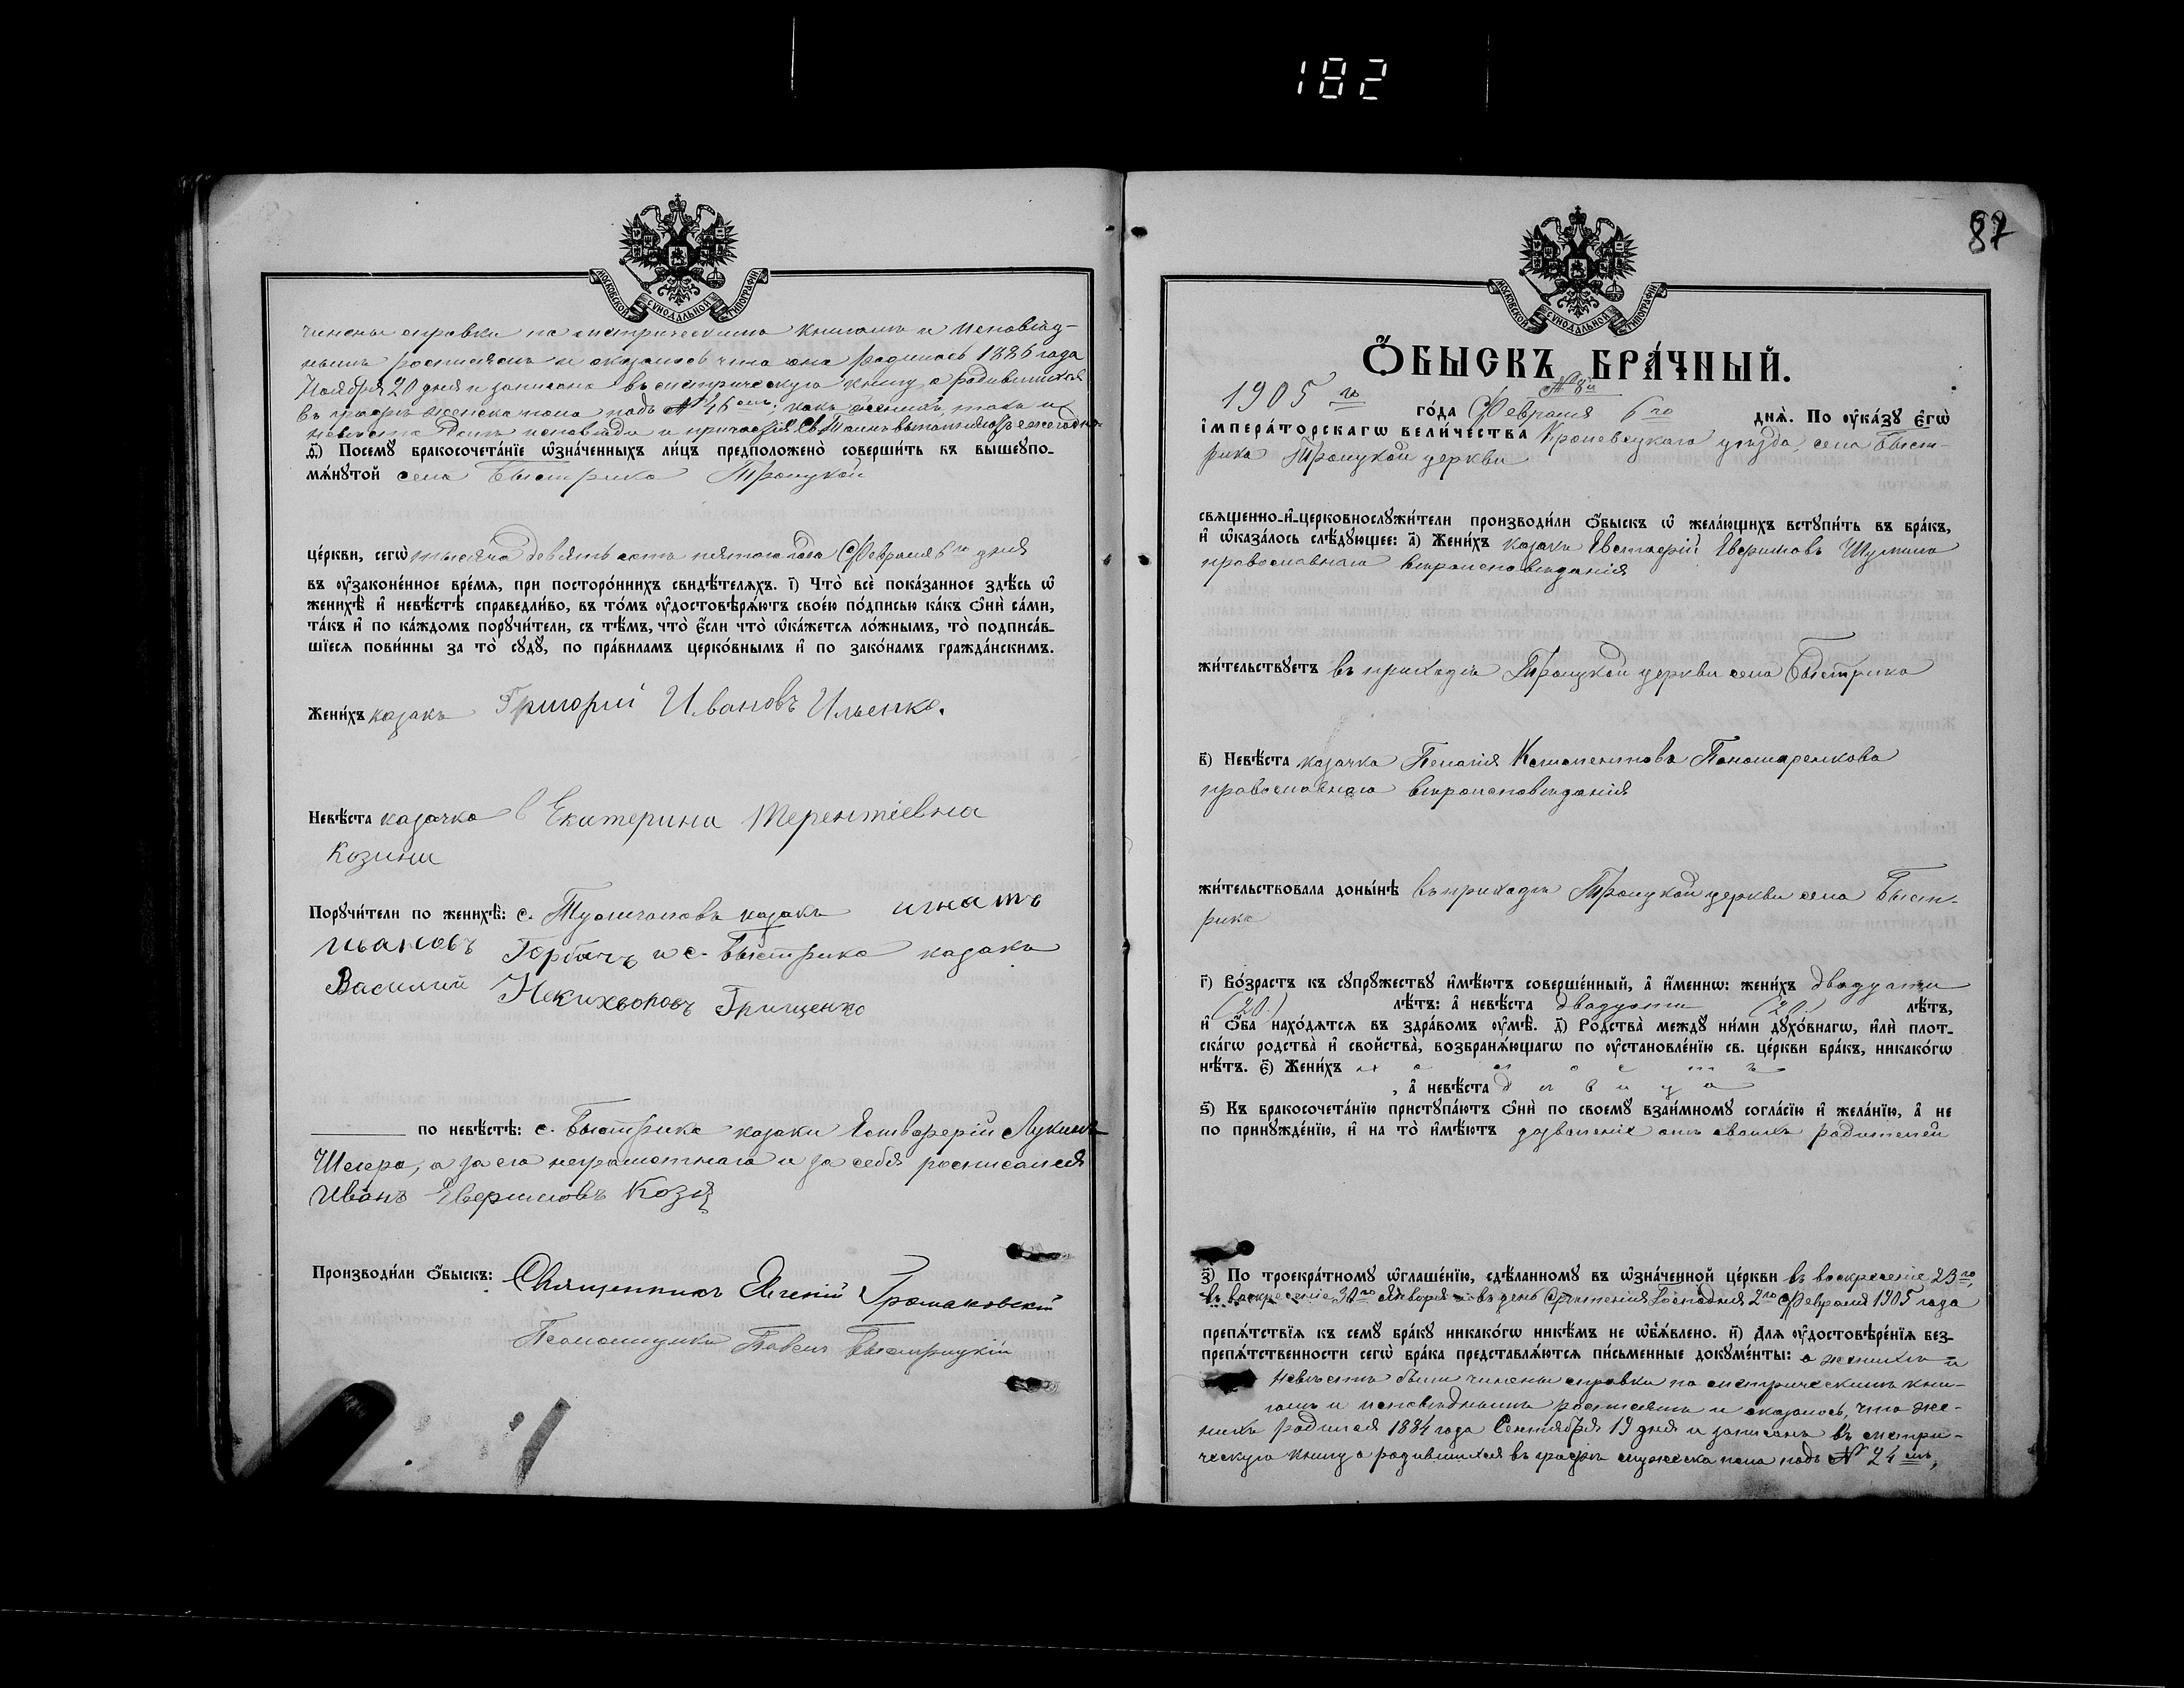 182
МОСКОВСКОЙ СѴНОДАЛЬНОЙ ТИПОГРАФІИ
чинены справки по метрическимъ книгамъ и исповѣд-
нымъ росписямъ и оказалось что она родилась 1886 года
Ноября 20 дня и записана въ метрическую книгу о родившихся
въ графѣ женска пола подъ № 46 омъ; какъ женихъ, такъ и
невѣста долгъ исповѣди и причастія Св. Таинъ выполняютъ ежегодно
ѳ҃) Посемꙋ̀ бракосочета́нїе ѡ҆зна́ченныхъ ли́цъ предположено̀ соверши́ть въ вышеꙋпо-
мѧ́нꙋтой села Быстрика Троицкой
це́ркви, сегѡ̀ тысяча девятьсотъ пятаго года Февраля 6 го дня
въ ᲂу҆зако́ненное вре́мѧ, при посторо́ннихъ свидѣ́телѧхъ. і҃) Что̀ всѐ пока́занное здѣ́сь ѡ҆
женихѣ̀ и҆ невѣ́стѣ справедли́во, въ то́мъ ᲂу҆достовѣрѧ́ютъ свое́ю по́дписью ка́къ ѻ҆нѝ са́ми,
та́къ и҆ по ка́ждомъ порꙋчи́тели, съ тѣ́мъ, что̀ є҆́сли что̀ ѡ҆ка́жетсѧ ло́жнымъ, то̀ подписа́в-
шїесѧ пови́нны за то̀ сꙋдꙋ̀, по пра́виламъ церко́внымъ и҆ по зако́намъ гражда́нскимъ.
Жени́хъ казакъ Григорій Ивановъ Ильенко.
Невѣ́ста казачка Екатерина Терентіевна
Козина
Порꙋчи́тели по женихѣ̀: с. казакъ игнатъ
ивановъ Горбачъ и с. Быстрика казакъ
Василий Грищенко
по невѣ́стѣ: с. Быстрика казаки Лукинъ
Шегера, а за его неграмотнаго и за себя росписался
Иванъ Козій
Производи́ли ѻ҆́быскъ: Священникъ Евгеній Громаковскій
Псаломщикъ Павелъ Быстрицкій
87
МОСКОВСКОЙ СѴНОДАЛЬНОЙ ТИПОГРАФІИ
Ѻ҆́БЫСКЪ БРА́ЧНЫЙ.
№ 8 й
1905 го го́да Февраля 6 го днѧ̀. По ᲂу҆ка́зꙋ є҆гѡ̀
і҆мпера́торскагѡ вели́чества Кролевецкаго уѣзда, села Быст-
рика Троицкой церкви
свѧщенно-и҆-церковнослꙋжи́тели производи́ли ѻ҆́быскъ ѡ҆ жела́ющихъ встꙋпи́ть въ бра́къ,
и҆ ѡ҆каза́лось слѣ́дꙋющее: а҃) Жени́хъ казакъ Евстафій Евфимовъ Шумило
православнаго вѣроисповѣданія
жи́тельствꙋетъ въ приходѣ Троицкой церкви села Быстрика
в҃) Невѣ́ста казачка Пелагія Климентова Пономаренкова
православнаго вѣроисповѣданія
жи́тельствовала доны́нѣ въ приходѣ Троицкой церкви села Быст-
рика
г҃) Во́зрастъ къ сꙋпрꙋ́жествꙋ и҆мѣ́ютъ соверше́нный, а҆ и҆́меннѡ: жени́хъ двадцати
(20.) лѣ́тъ: а҆ невѣ́ста двадцати (20.) лѣ́тъ,
и҆ ѻ҆́ба нахо́дѧтсѧ въ здра́вомъ ᲂу҆мѣ̀. д҃) Родства̀ междꙋ̀ ни́ми дꙋхо́внагѡ, и҆лѝ плот-
ска́гѡ родства̀ и҆ сво́йства, возбранѧ́ющагѡ по ᲂу҆становле́нїю св. це́ркви бра́къ, никако́гѡ
нѣ́тъ. є҃) Жени́хъ холостъ
, а҆ невѣ́ста дѣвица
ѕ҃) Къ бракосочета́нїю пристꙋпа́ютъ ѻ҆нѝ по своемꙋ̀ взаи́мномꙋ согла́сїю и҆ жела́нїю, а҆ не
по принꙋжде́нїю, и҆ на то̀ и҆мѣ́ютъ дозволеніе отъ своихъ родителей
з҃) По троекра́тномꙋ ѡ҆глаше́нїю, сдѣ́ланномꙋ въ ѡ҆зна́ченной це́ркви въ воскресеніе 23 го,
въ воскресеніе 30 го Января и въ день Срѣтенія Господня 2 го Февраля 1905 года
препѧ́тствїѧ къ семꙋ̀ бра́кꙋ никако́гѡ никѣ́мъ не ѡ҆б̾ѧ́влено. и҃) Длѧ ᲂу҆достовѣре́нїѧ без-
препѧ́тственности сегѡ̀ бра́ка представлѧ́ютсѧ пи́сьменные докꙋме́нты: о женихѣ и
невѣстѣ были чинены справки по метрическимъ кни-
гамъ и исповѣднымъ росписямъ и оказалось, что же-
нихъ родился 1884 года Сентября 19 дня и записанъ въ метри-
ческую книгу о родившихся въ графѣ мужеска пола подъ № 24 мъ,